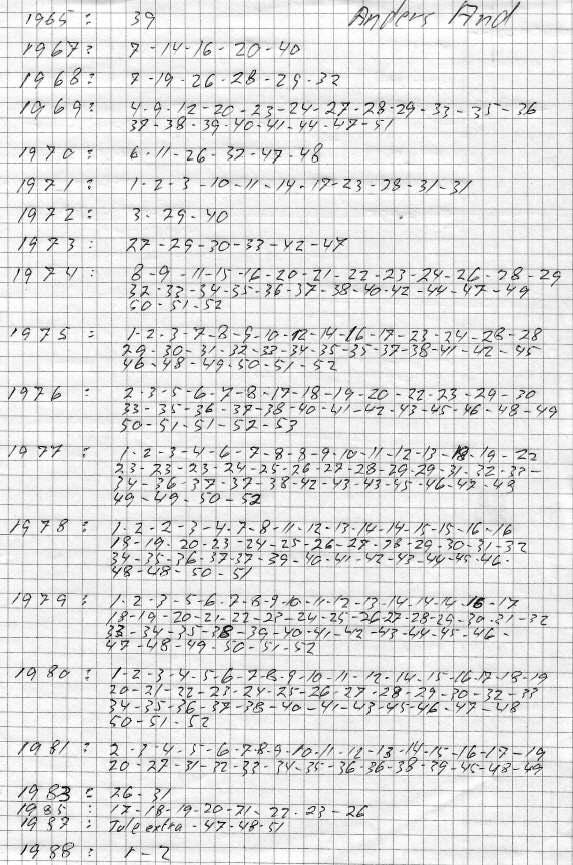 Anders And
1965: 39
1967: 7-14-16-20-40
1968: 7-19-26-28-29-32
1969: 4-9-12-20-23-24-27-28-29-33-35-36
37-38-39-40-41-44-47-51
1970: 6-11-26-37-47-48
1971: 1-2-3-10-11-14-17-23-28-31-31
1972: 3-29-40
1973: 27-29-30-33-42-47
1974: 8-9-11-15-16-20-21-22-23-24-26-28-29
32-33-34-35-36-37-38-40-42-44-47-49
50-51-52
1975: 1-2-3-7-8-9-10-12-14-16-17-23-24-28-28
29-30-31-32-33-34-35-35-37-38-41-42-45
46-48-49-50-51-52
1976: 2-3-5-6-7-8-17-18-19-20-22-23-29-30
33-35-36-37-38-40-41-42-43-45-46-48-49
50-51-51-52-53
1977: 1-2-3-4-6-7-8-8-9-10-11-12-13-18-19-22
23-23-23-24-25-26-27-28-29-29-31-32-33-
34-36-37-37-38-42-43-43-45-46-47-49
49-49-50-52
1978: 1-2-2-3-4-7-8-11-12-13-14-14-15-15-16-16
18-19-20-23-24-25-26-27-28-29-30-31-32
34-35-36-37-37-39-40-41-42-43-44-45-46-
48-48-50-51
1979: 1-2-3-5-6-7-8-9-10-11-12-13-14-14-14-16-17
18-19-20-21-22-23-24-25-26-27-28-29-30-31-32
33-34-35-38-39-40-41-42-43-44-45-46-
47-48-49-50-51-52
1980: 1-2-3-4-5-6-7-8-9-10-11-12-14-15-16-17-18-19
20-21-22-23-24-25-26-27-28-29-30-32-33
34-35-36-37-38-40-41-43-45-46-47-48
50-51-52
1981: 2-3-4-5-6-7-8-9-10-11-12-13-14-15-16-17-19
20-27-31-32-33-34-35-36-36-38-39-45-48-49
1983: 26-31
1985: 17-18-19-20-21-22-23-26
1987: Jule extra-47-48-51
1988: 1-2